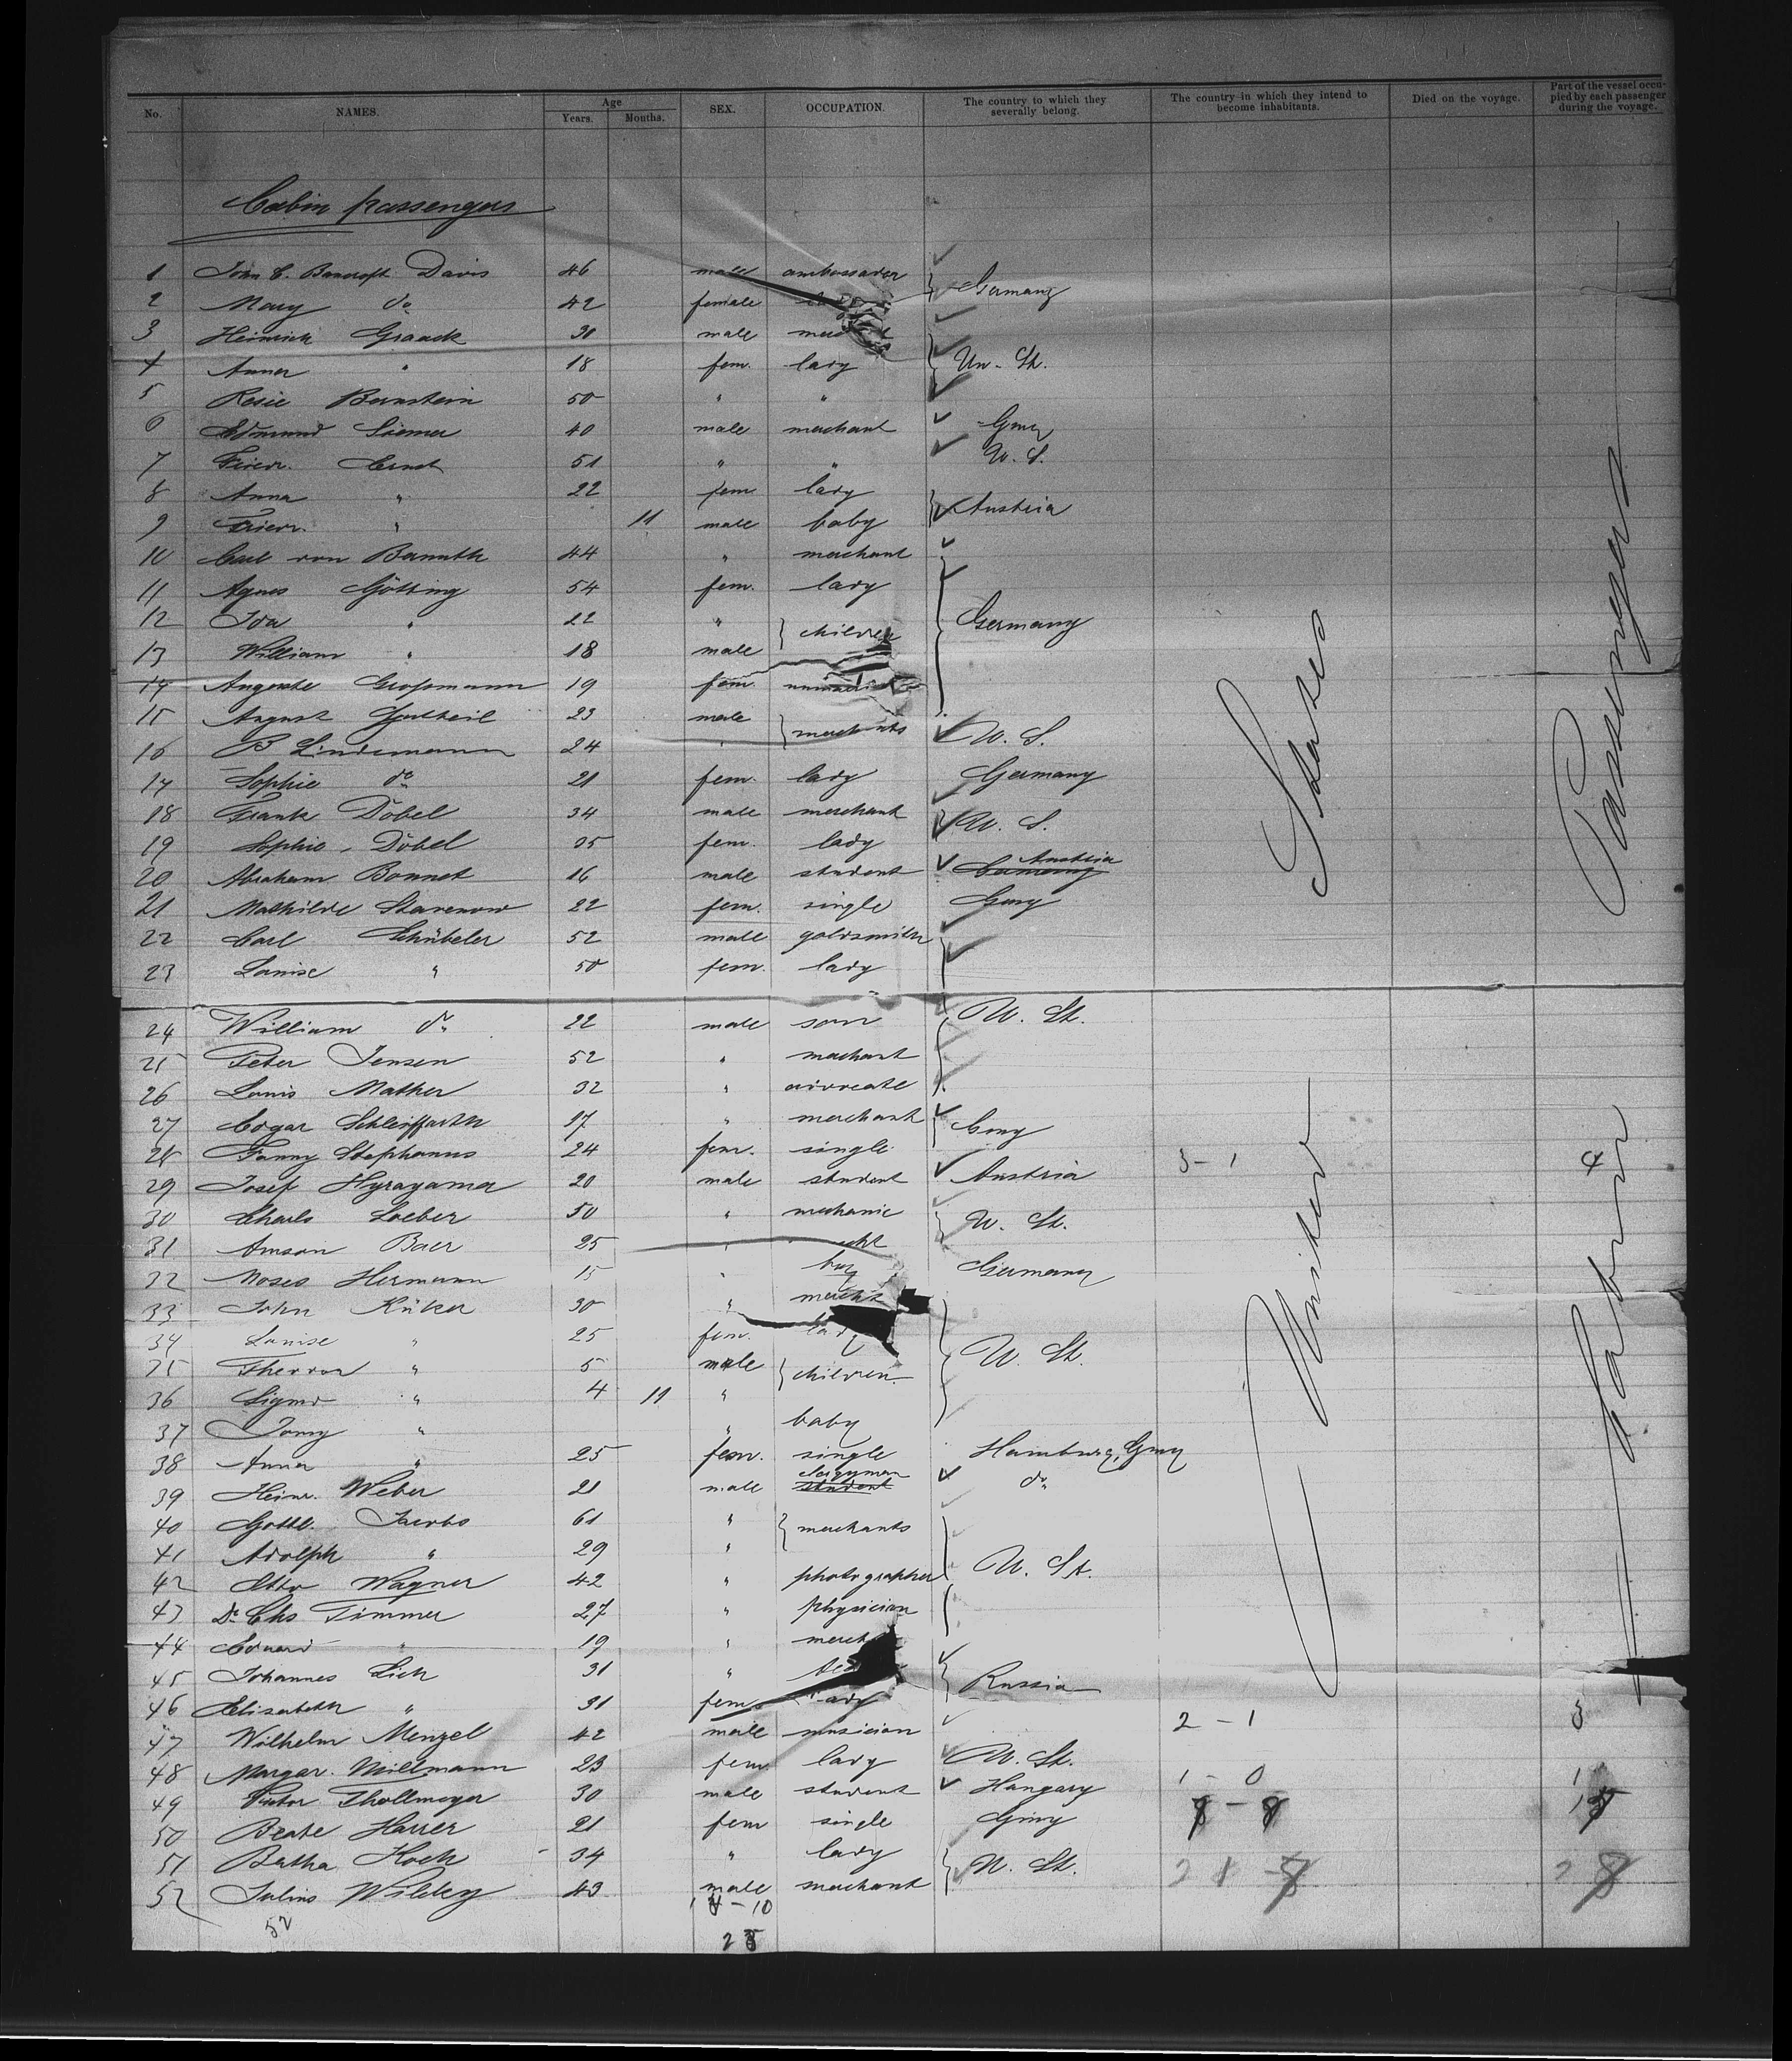 No. NAMES. Age Years. Months. SEX. OCCUPATION. The country to which they severally belong. The country in which they intend to become inhabitants. Died on the voyage. Part of the vessel occupied by each passenger during the voyage.
Cabin passengers
1 John C. Bancroft Davis 46 male ambassador Germany
2 Mary do 42 female
3 Heinrich Graack 30 male
4 Anna " 18 fem. lady Un. St.
5 Rosie Bernstein 50 " "
6 Edmund Siemer 40 male merchant Gmy
7 Friedr. Ernst 51 " " U. S.
8 Anna " 22 fem. lady
9 Friedr. " 11 male baby Austria
10 Carl von Bernuth 44 " merchant
11 Agnes Götting 54 fem. lady
12 Ida " 22 " children Germany
13 William " 18 male
14 Auguste Großmann 19 fem.
15 August Gutheil 23 male merchants
16 B Lindemann 24 " U. S.
17 Sophie do 21 fem. lady Germany
18 Frank Döbel 34 male merchant U. S.
19 Sophie Döbel 35 fem. lady
20 Abraham Bonnet 16 male student Germany Austria
21 Mathilde Stavenow 22 fem. single Gmy
22 Carl Schübeler 52 male goldsmith
23 Louise " 50 fem. lady
24 William do 22 male son U. St.
25 Peter Jensen 52 " merchant
26 Louis Mather 32 " advocate
27 Edgar Schleiffarth 27 " merchant Gmy
28 Fanny Stephanus 24 fem. single 3-1 4
29 Josef Hyrayama 20 male student Austria
30 Charls Loeber 50 " mechanic U. St.
31 Amson Baer 25 "
32 Moses Hermann 15 " boy Germany
33 John Rüker 30 " mercht
34 Louise " 25 fem. lady
35 Theodor " 5 male children U. St.
36 Sigmd " 4 11 "
37 " " baby
38 Anna " 25 fem. single Hamburg, Gmy
39 Heinr. Weber 21 male student clergyman do
40 Gottl. Jacobs 61 " merchants
41 Adolph " 29 "
42 Otto Wagner 42 " photographer U. St.
43 Dr Chs Timmer 27 " physician
44 Eduard " 19 "
45 Johannes Lich 31 "
46 Elisabeth " 31 fem. lady Russia
47 Wilhelm Menzel 42 male musician 2-1 3
48 Margar. Millmann 23 fem. lady U. St.
49 Victor Thollmeyer 30 male student Hungary 1-0 1
50 Beate Harrer 21 fem single Gmy
51 Bertha Koch 34 " lady
52 Julius Wilkey 43 male merchant U. St.
52
United States
Saloon Passengers